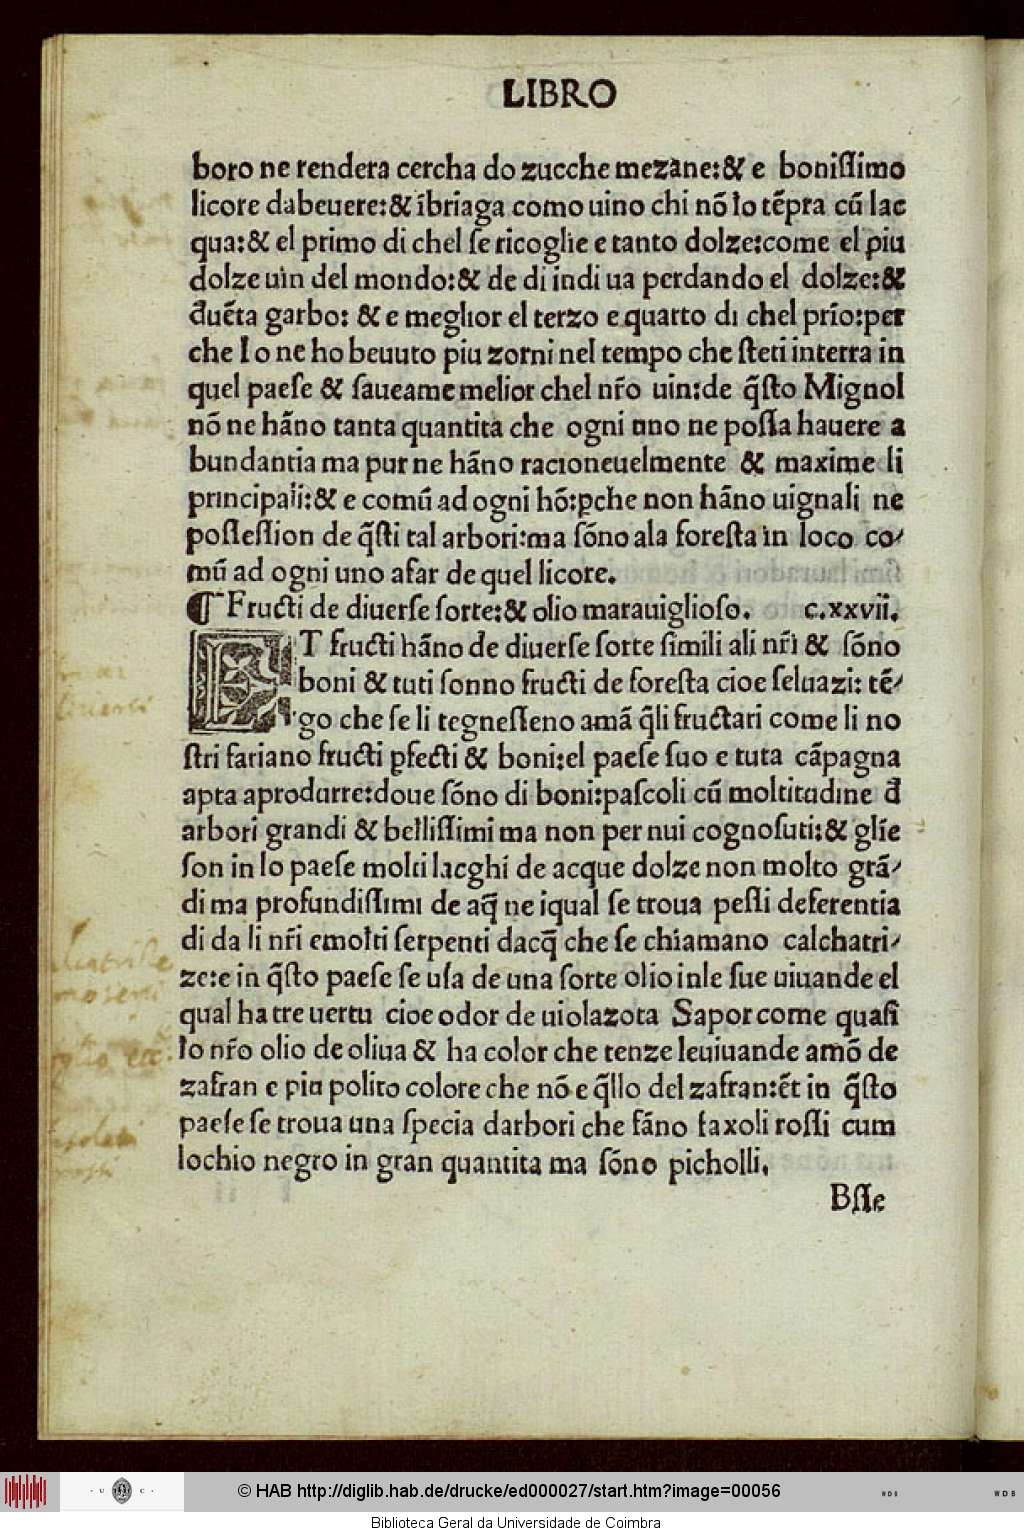 LIBRO
boro ne rendera cercha do zucche mezane:& e boniſſimo
licore dabeuere:& ĩbriaga como uino chi nõ lo tẽpra cũ lac
qua:& el primo di chel ſe ricoglie e tanto dolze:come el piu
dolze uin del mondo:& de di indi ua perdando el dolze:&
đuẽta garbo: & e meglior el terzo e quarto di chel prĩo:per
che Io ne ho beuuto piu zorni nel tempo che ſteti interra in
quel paeſe & ſaueame melior chel nr̃o uin:de q̃ſto Mignol
nõ ne hãno tanta quantita che ogni uno ne poſſa hauere a
bundantia ma pur ne hãno racioneuelmente & maxime li
principali:& e comũ ad ogni hõ:ꝑche non hãno uignali ne
poſſeſſion de q̃ſti tal arbori:ma ſõno ala foreſta in loco co-
mũ ad ogni uno afar de quel licore.
¶ Fructi de diuerſe ſorte:& olio marauiglioſo. c.xxvii.
ET fructi hãno de diuerſe ſorte ſimili ali nr̃i & ſõno
boni & tuti ſonno fructi de foreſta cioe ſeluazi: tẽ-
go che ſe li tegneſſeno amã q̃li fructari come li no
ſtri fariano fructi ꝑfecti & boni:el paeſe ſuo e tuta cãpagna
apta aprodurre:doue ſõno di boni:paſcoli cũ moltitudine đ
arbori grandi & belliſſimi ma non per nui cognoſuti:& glie
ſon in lo paeſe molti lacghi de acque dolze non molto grã-
di ma profundiſſimi de aq̃ ne iqual ſe troua peſſi deferentia
di da li nr̃i emolti ſerpenti dacq̃ che ſe chiamano calchatri-
ze:e in q̃ſto paeſe ſe uſa de una ſorte olio inle ſue uiuande el
qual ha tre uertu cioe odor de uiolazota Sapor come quaſi
lo nr̃o olio de oliua & ha color che tenze leuiuande amõ de
zafran e piu polito colore che nõ e q̃llo del zafran:et̃ in q̃ſto
paeſe ſe troua una ſpecia darbori che fãno faxoli roſſi cum
lochio negro in gran quantita ma ſõno picholli,
Bſſe
© HAB http://diglib.hab.de/drucke/ed000027/start.htm?image=00056
Biblioteca Geral da Universidade de Coimbra